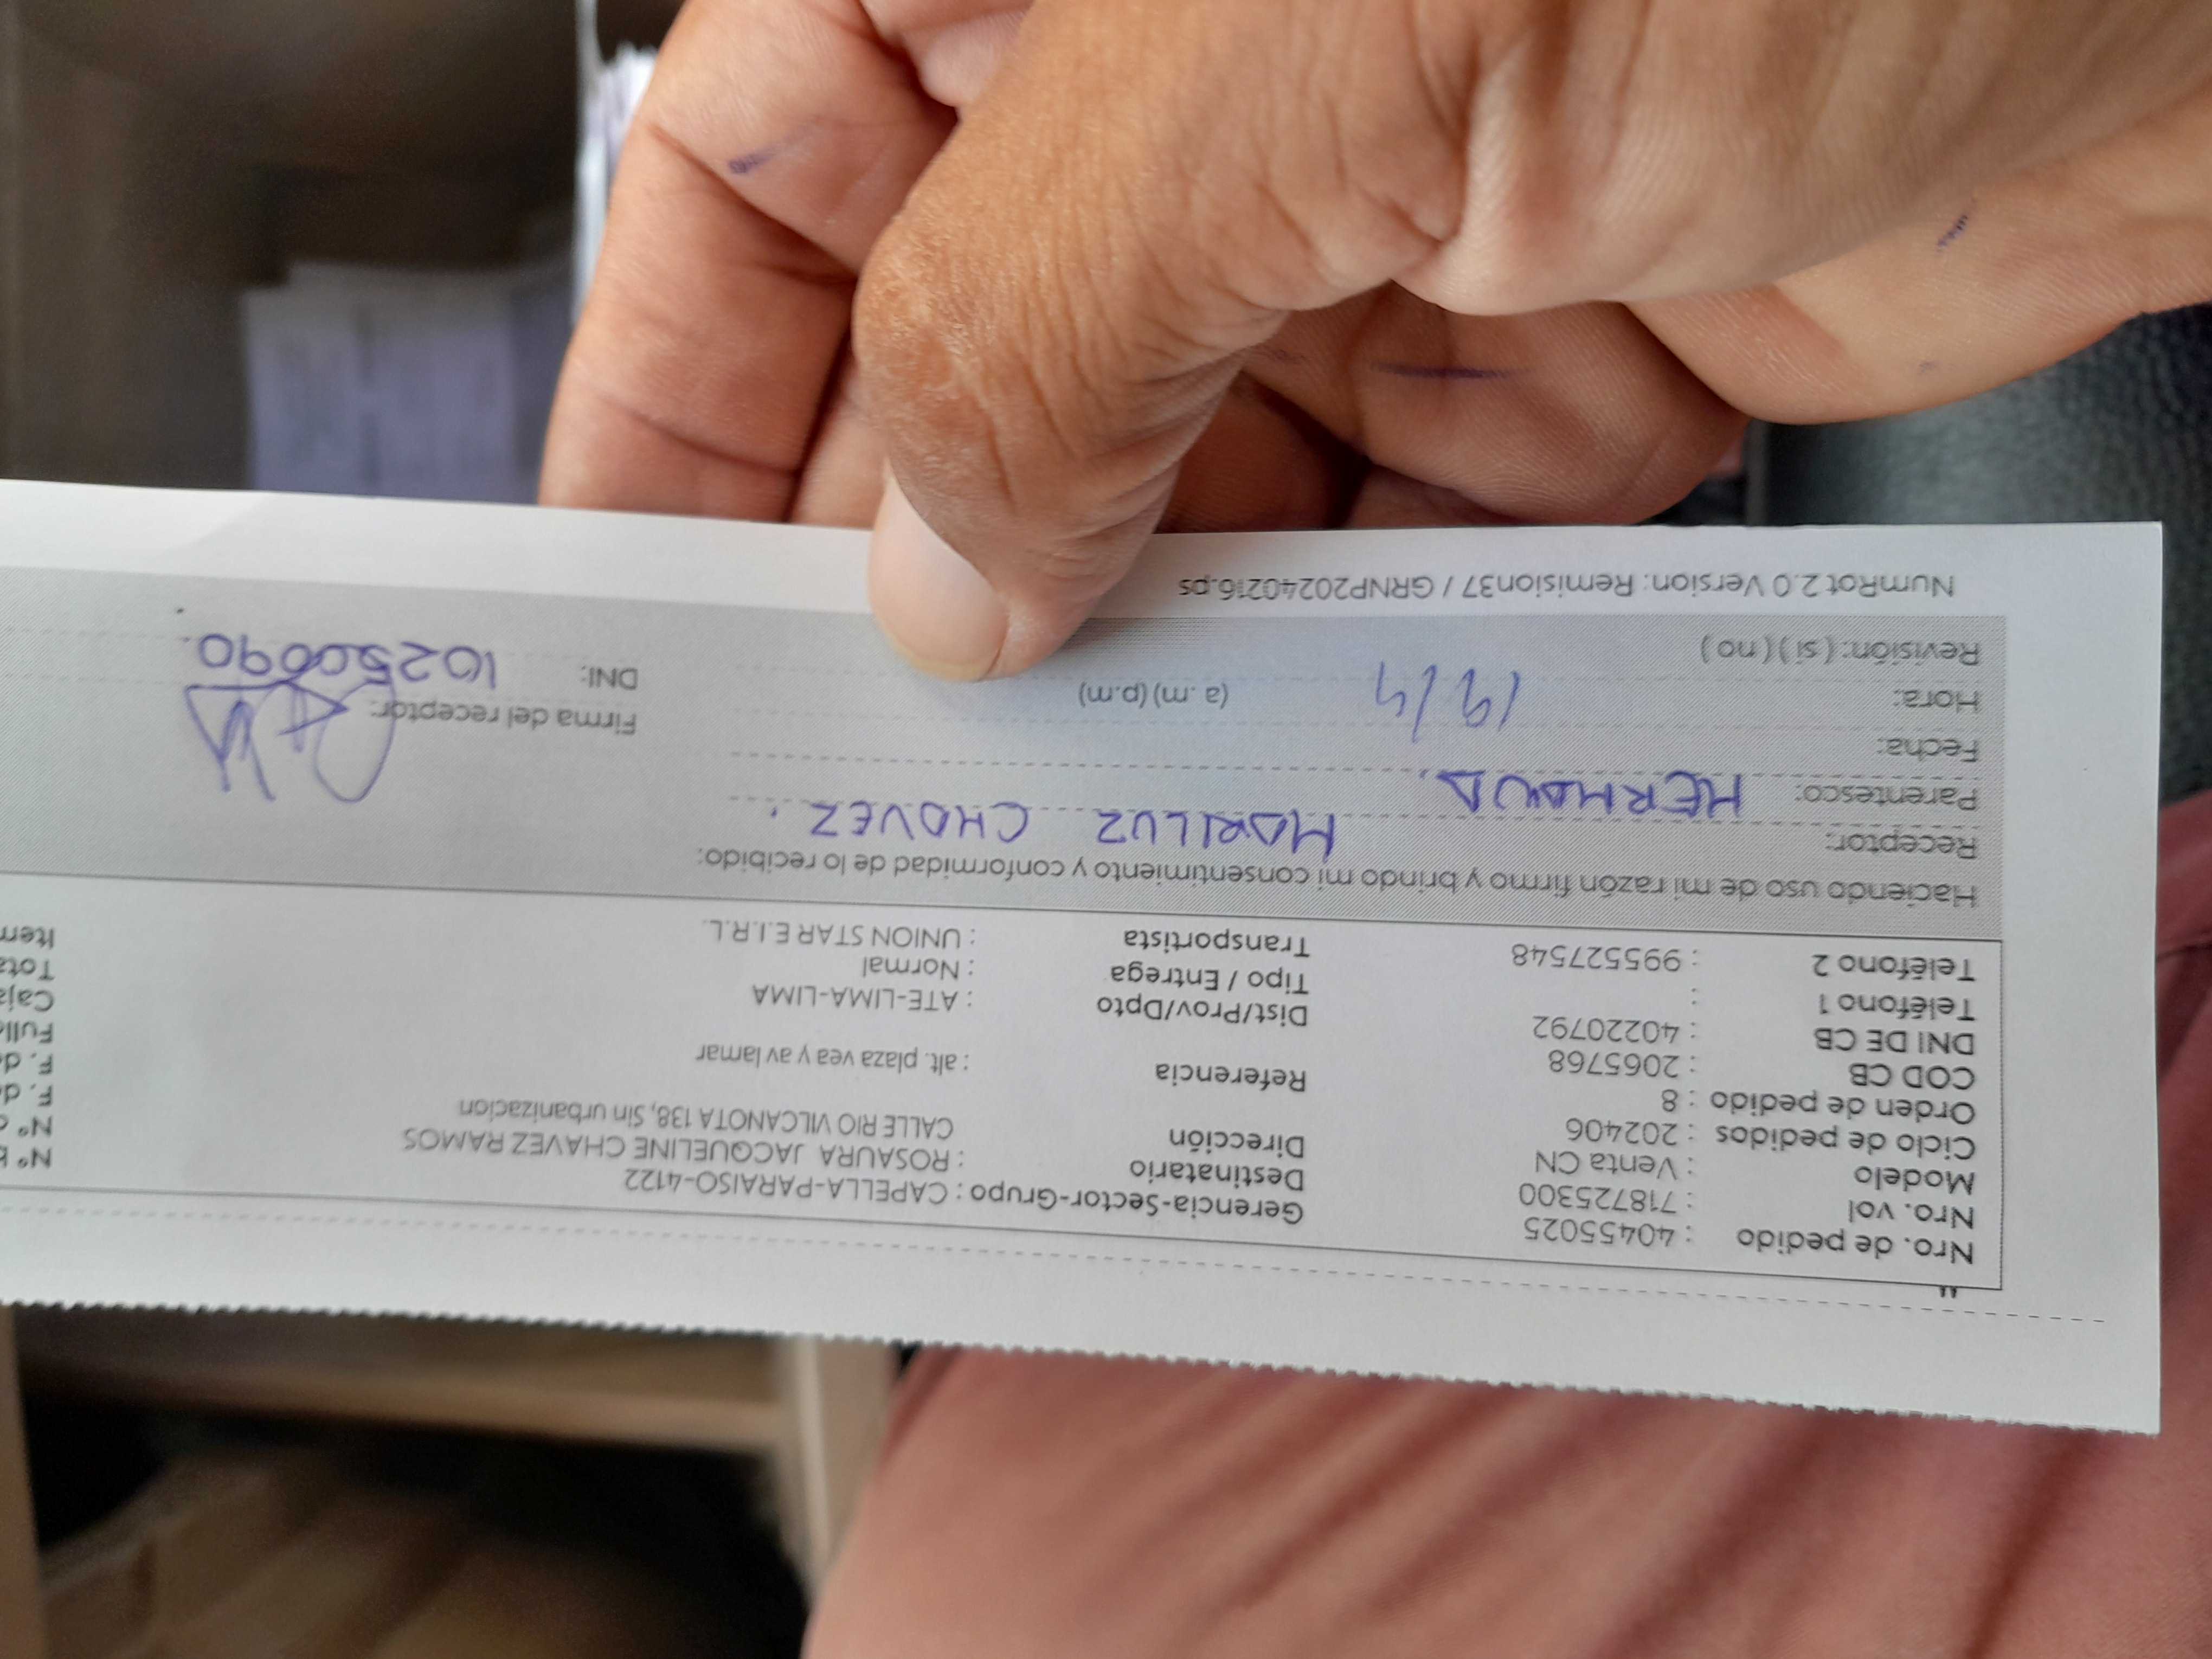 Nro. de pedido : 40455025
Nro. vol : 718725300
Modelo : Venta CN
Ciclo de pedidos : 202406
Orden de pedido : 8
COD CB : 2065768
DNI DE CB : 40220792
Teléfono 1 :
Teléfono 2 : 995527548
Gerencia-Sector-Grupo : CAPELLA-PARAISO-4122
Destinatario : ROSAURA JACQUELINE CHAVEZ RAMOS
Dirección CALLE RIO VILCANOTA 138, Sin urbanizacion
Referencia : alt. plaza vea y av lamar
Dist/Prov/Dpto : ATE-LIMA-LIMA
Tipo / Entrega : Normal
Transportista : UNION STAR E.I.R.L.
Nº
Nº
F. d
F. d
Full
Caja
Tota
Item
Haciendo uso de mi razón firmo y brindo mi consentimiento y conformidad de lo recibido:
Receptor: MARILUZ CHAVEZ.
Parentesco: HERMANA.
Fecha: 19/4
Hora: (a.m) (p.m)
Revisión: ( si ) ( no )
Firma del receptor:
DNI: 10250090
NumRot 2.0 Version: Remision37 / GRNP20240216.ps